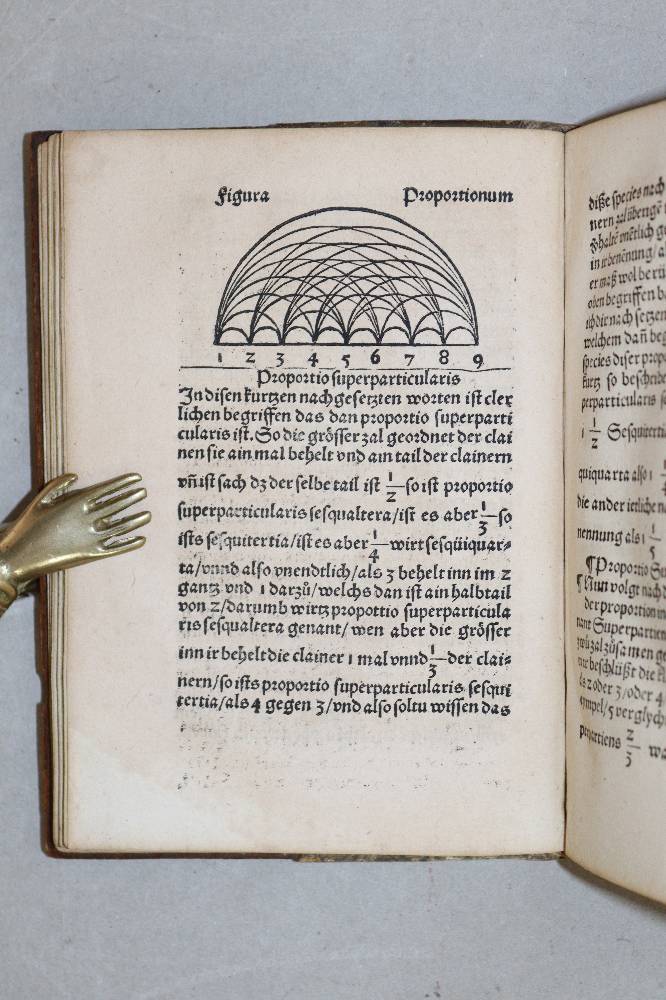 Figura Proportionum
1 2 3 4 5 6 7 8 9
Proportio superparticularis
In disen kurtzen nachgesetzten worten ist cler
lichen begriffen das dan proportio superparti
cularis ist. So die grösser zal geordnet der clai
nen sie ain mal behelt vnd ain tail der clainern
vñ ist sach dz der selbe tail ist 1/2 so ist proportio
superparticularis sesqualtera/ist es aber 1/3 so
ists sesquitertia/ist es aber 1/4 wirt sesqüiquar⸗
ta/vnnd also vnendtlich/als 3 behelt inn im 2
gantz vnd 1 darzů/welchs dan ist ain halbtail
von 2/darumb wirtz propottio superparticula
ris sesqualtera genant/wen aber die grösser
inn ir behelt die clainer 1 mal vnnd 1/3 der clai⸗
nern/so ists proportio superparticularis sesqui
tertia/als 4 gegen 3/vnd also soltu wissen das
diße species nach
nern zal übeng
in irbenẽnung/a
er maß wol be rü
oben be griffen b
ich die nach setzen
welchem dañ beg
species diser prop
kurtz so beschribe
perparticularis s
1 1/2 Sesquiterti
quiquarta also 1
die ander ietliche n
nennung als 1 1/5
¶Proportio Su
¶Nun volgt nach d
der proportion in
nant Superpartien
zwů zal zůsamen ge
wie beschlüßt die k
als 2 oder 3/oder 4
exympel/5 verglych
partiens 2/3 wa